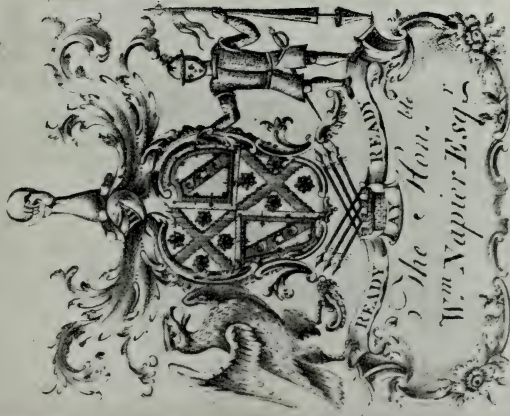 READY AY READY
The Hon.ble
Wm Napier Esqr